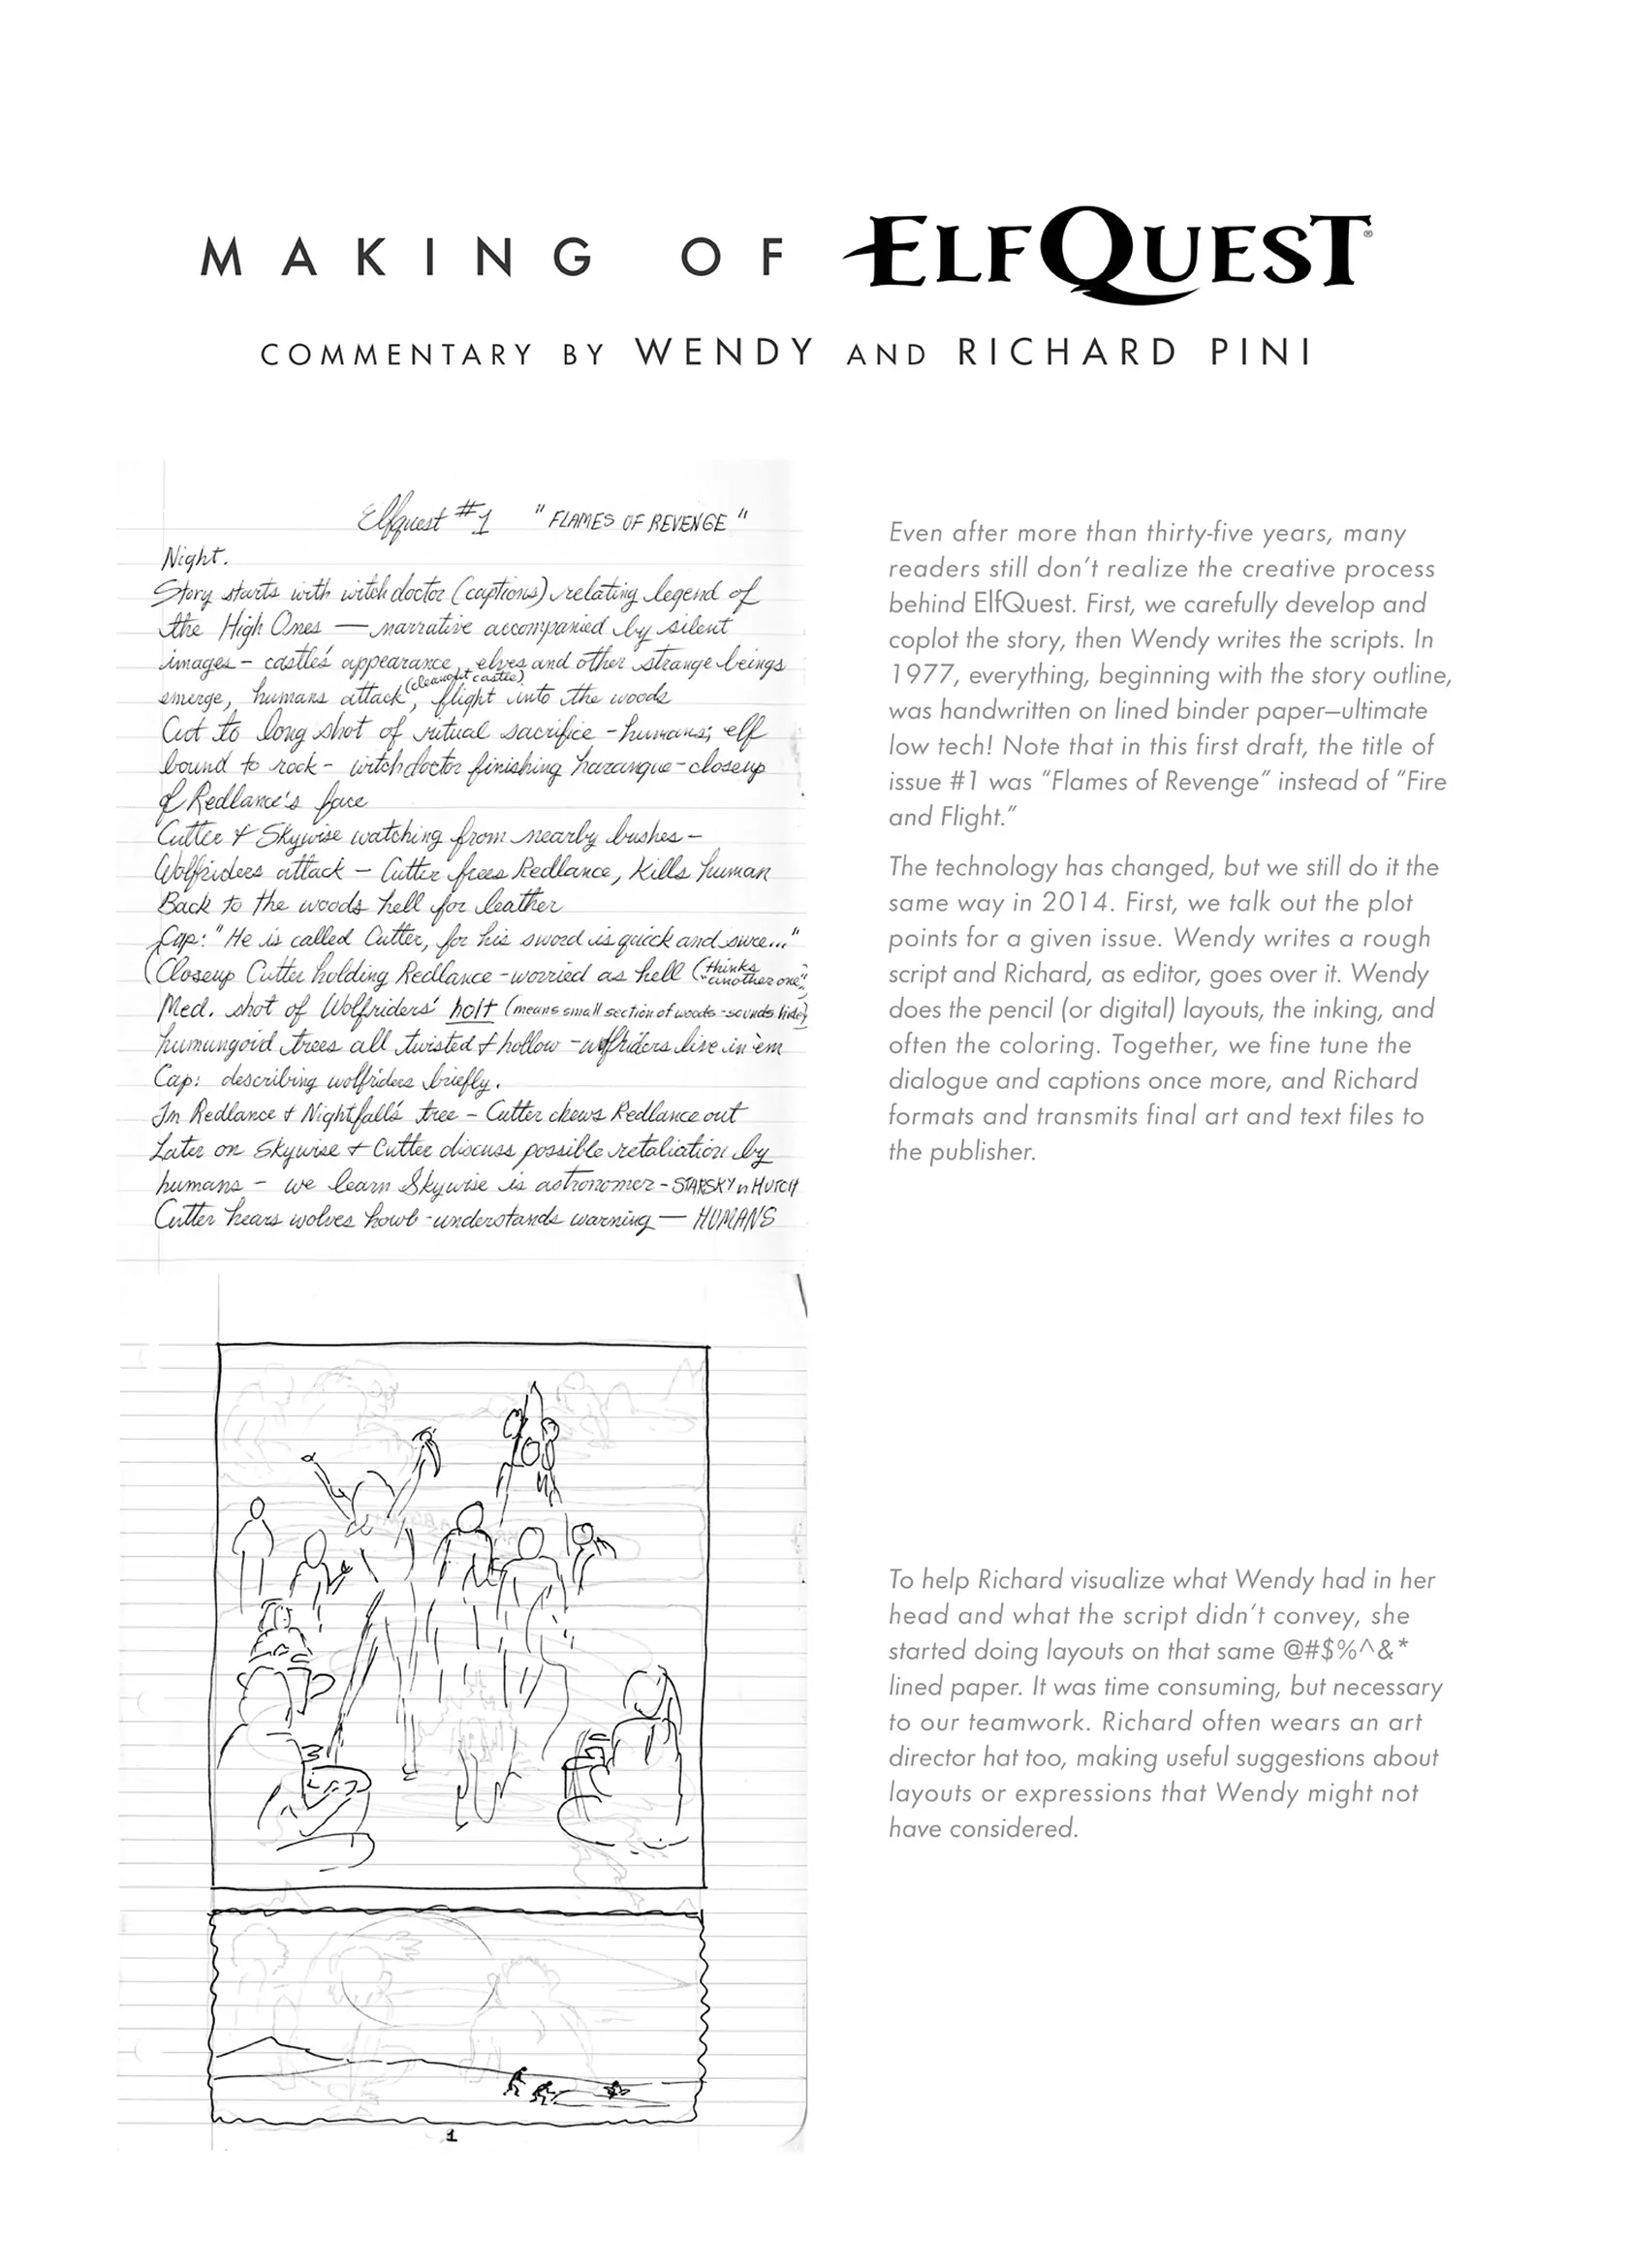 MAKING OF ELFQUEST®
COMMENTARY BY WENDY AND RICHARD PINI
Elfquest #1 "FLAMES OF REVENGE"
Night.
Story starts with witch doctor (captions) relating legend of
the High Ones — narrative accompanied by silent
images – castle's appearance, elves and other strange beings
emerge, humans attack, (clearout castle) flight into the woods
Cut to long shot of ritual sacrifice – humans; elf
bound to rock – witch doctor finishing harangue – closeup
of Redlance's face
Cutter & Skywise watching from nearby bushes –
Wolfriders attack – Cutter frees Redlance, Kills human
Back to the woods hell for leather
Cap: "He is called Cutter, for his sword is quick and sure..."
(Closeup Cutter holding Redlance – worried as hell (thinks "another one"
Med. shot of Wolfriders' holt (means small section of woods – sounds
humungoid trees all twisted & hollow – wolfriders live in 'em
Cap: describing wolfriders briefly.
In Redlance & Nightfall's tree – Cutter chews Redlance out
Later on Skywise & Cutter discuss possible retaliation by
humans – we learn Skywise is astronomer – STARSKY n HUTCH
Cutter hears wolves howl – understands warning — HUMANS
Even after more than thirty-five years, many
readers still don't realize the creative process
behind ElfQuest. First, we carefully develop and
coplot the story, then Wendy writes the scripts. In
1977, everything, beginning with the story outline,
was handwritten on lined binder paper—ultimate
low tech! Note that in this first draft, the title of
issue #1 was “Flames of Revenge” instead of “Fire
and Flight.”
The technology has changed, but we still do it the
same way in 2014. First, we talk out the plot
points for a given issue. Wendy writes a rough
script and Richard, as editor, goes over it. Wendy
does the pencil (or digital) layouts, the inking, and
often the coloring. Together, we fine tune the
dialogue and captions once more, and Richard
formats and transmits final art and text files to
the publisher.
To help Richard visualize what Wendy had in her
head and what the script didn't convey, she
started doing layouts on that same @#$%^&*
lined paper. It was time consuming, but necessary
to our teamwork. Richard often wears an art
director hat too, making useful suggestions about
layouts or expressions that Wendy might not
have considered.
1